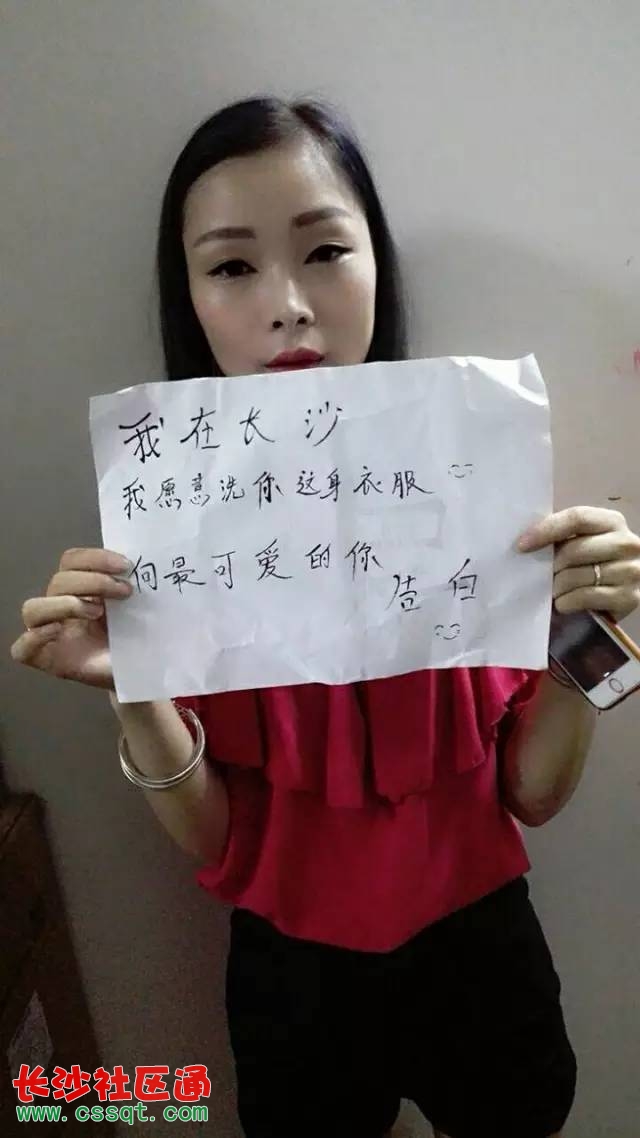 我在长沙
我愿意洗你这身衣服
向最可爱的你
告白
长沙社区通
www.cssqt.com